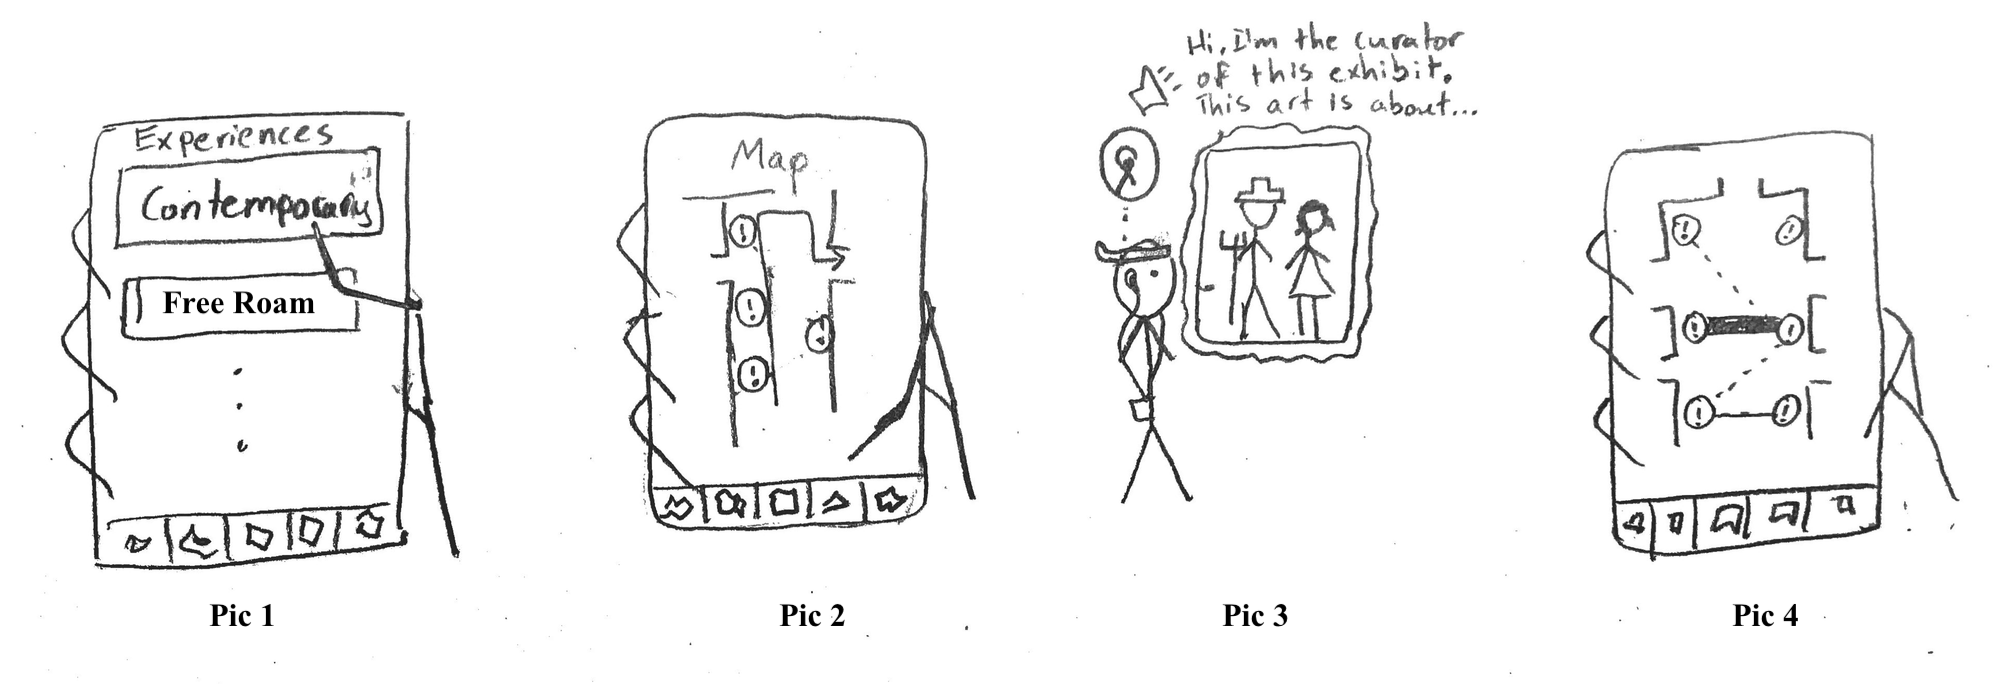 Experiences
Contemporary
Free Roam
Pic 1
Map
!
!
!
!
Pic 2
Hi, I'm the curator
of this exhibit.
This art is about...
Pic 3
! !
! !
! !
Pic 4